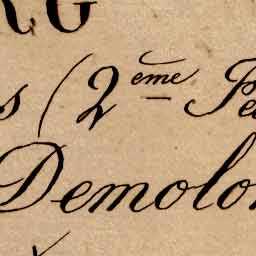 RG
s (2ème Pe
Demolo